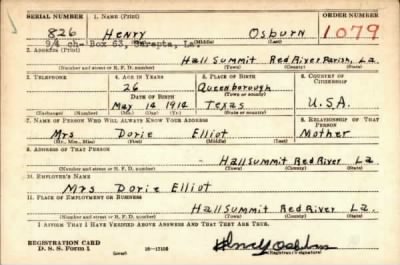 SERIAL NUMBER 1. NAME (Print) ORDER NUMBER
826 Henry Osburn 1079
94 ch- Box 63, Sarepta, La. (Middle) (Last)
2. ADDRESS (Print)
Hall Summit Red River Parish, La.
(Number and street or R. F. D. number) (Town) (County) (State)
3. TELEPHONE 4. AGE IN YEARS 5. PLACE OF BIRTH 6. COUNTRY OF CITIZENSHIP
26 Queenborough
DATE OF BIRTH (Town or county)
May 14 1914 Texas U.S.A.
(Exchange) (Number) (Mo.) (Day) (Yr.) (State or country)
7. NAME OF PERSON WHO WILL ALWAYS KNOW YOUR ADDRESS 8. RELATIONSHIP OF THAT PERSON
Mrs Dorie Elliot Mother
(Mr., Mrs., Miss) (First) (Middle) (Last)
9. ADDRESS OF THAT PERSON
Hall Summit Red River La
(Number and street or R. F. D. number) (Town) (County) (State)
10. EMPLOYER'S NAME
Mrs Dorie Elliot
11. PLACE OF EMPLOYMENT OR BUSINESS
Hall Summit Red River La.
(Number and street or R. F. D. number) (Town) (County) (State)
I AFFIRM THAT I HAVE VERIFIED ABOVE ANSWERS AND THAT THEY ARE TRUE.
REGISTRATION CARD Henry Osburn
D. S. S. Form 1 (over) 16-17105 (Registrant's signature)